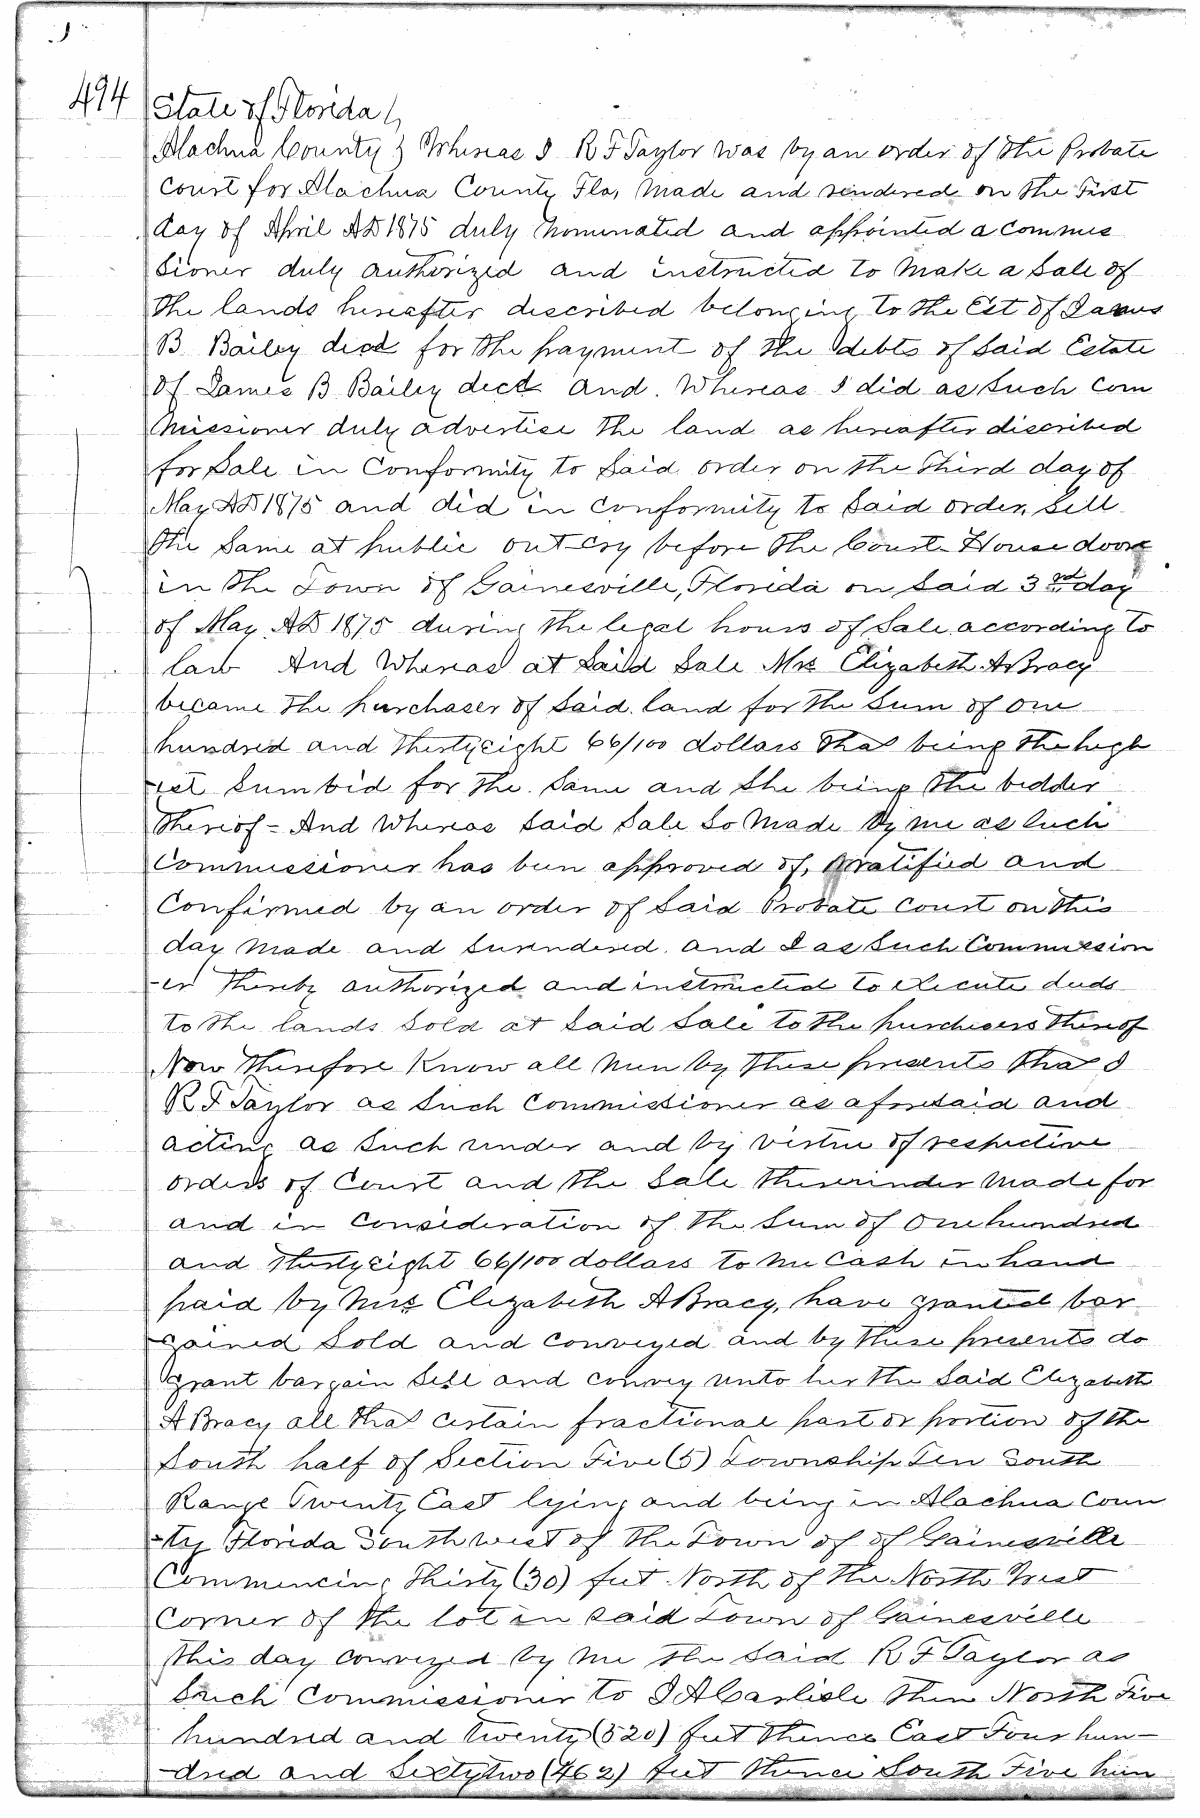 494
State of Florida
Alachua County } Whereas I R F Taylor was by an order of the Probate
Court for Alachua County Fla, made and rendered on the First
day of April AD 1875 duly nominated and appointed a Commis
sioner duly authorized and instructed to make a Sale of
the lands hereafter described belonging to the Est of James
B Bailey decd for the payment of the debts of Said Estate
of James B Bailey decd and. Whereas I did as Such Com
missioner duly advertise the land as hereafter discribed
for Sale in Conformity to Said order on the Third day of
May AD 1875 and did in conformity to Said order, Sell
the Same at public out-cry before the Court House door
in the Town of Gainesville, Florida on Said 3rd day
of May AD 1875 during the legal hours of Sale according to
law And Whereas at Said Sale Mrs Elizabeth A Bracy
became the purchaser of Said land for the Sum of One
hundred and thirtyeight 66/100 dollars that being the high
-est Sum bid for the Same and She being the bidder
thereof - And Whereas Said Sale So Made by me as Such
Commissioner has been approved of, ratified and
Confirmed by an order of Said Probate Court on this
day made and Surendered and I as Such Commission
-er thereby authorized and instructed to execute deeds
to the lands Sold at Said Sale to the purchasers thereof
Now therefore Know all Men by these presents that I
R F Taylor as Such Commissioner as aforesaid and
acting as Such under and by virtue of respective
orders of Court and the Sale thereunder made for
and in Consideration of the Sum of One hundred
and thirtyeight 66/100 dollars to me Cash in hand
paid by Mrs Elizabeth A Bracy, have granted bar
-gained Sold and Conveyed and by these presents do
grant bargain Sell and convey unto her the Said Elizabeth
A Bracy all that certain fractional part or portion of the
South half of Section Five (5) Township Ten South
Range Twenty East lying and being in Alachua Coun
-ty Florida South west of the Town of of Gainesville
Commencing Thirty (30) feet North of the North West
Corner of the lot in Said Town of Gainesville
this day conveyed by me the Said R F Taylor as
Such Commissioner to I A Carlisle then North Five
hundred and twenty (520) feet thence East Four hun-
-dred and Sixtytwo (462) feet thence South Five hun